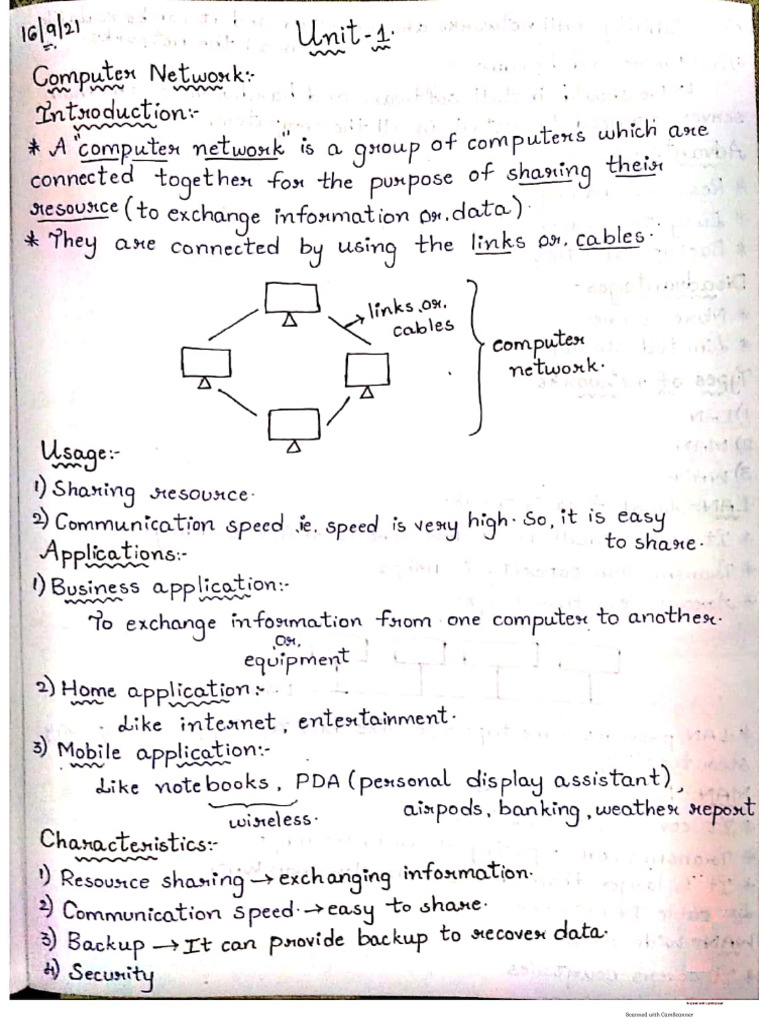 16/9/21
Unit-1.
Computer Network:-
Introduction:-
* A "computer network" is a group of computers which are
connected together for the purpose of sharing their
resource (to exchange information or. data).
* They are connected by using the links or. cables.
links or.
cables
computer
network.
Usage:-
1) Sharing resource.
2) Communication speed .ie. speed is very high. So, it is easy
to share.
Applications:-
1) Business application:-
To exchange information from one computer to another.
or.
equipment
2) Home application:-
Like internet, entertainment.
3) Mobile application:-
Like notebooks, PDA (personal display assistant),
wireless.
airpods, banking, weather report
Characteristics:-
1) Resource sharing → exchanging information.
2) Communication speed. → easy to share.
3) Backup → It can provide backup to recover data.
4) Security
Scanned with CamScanner